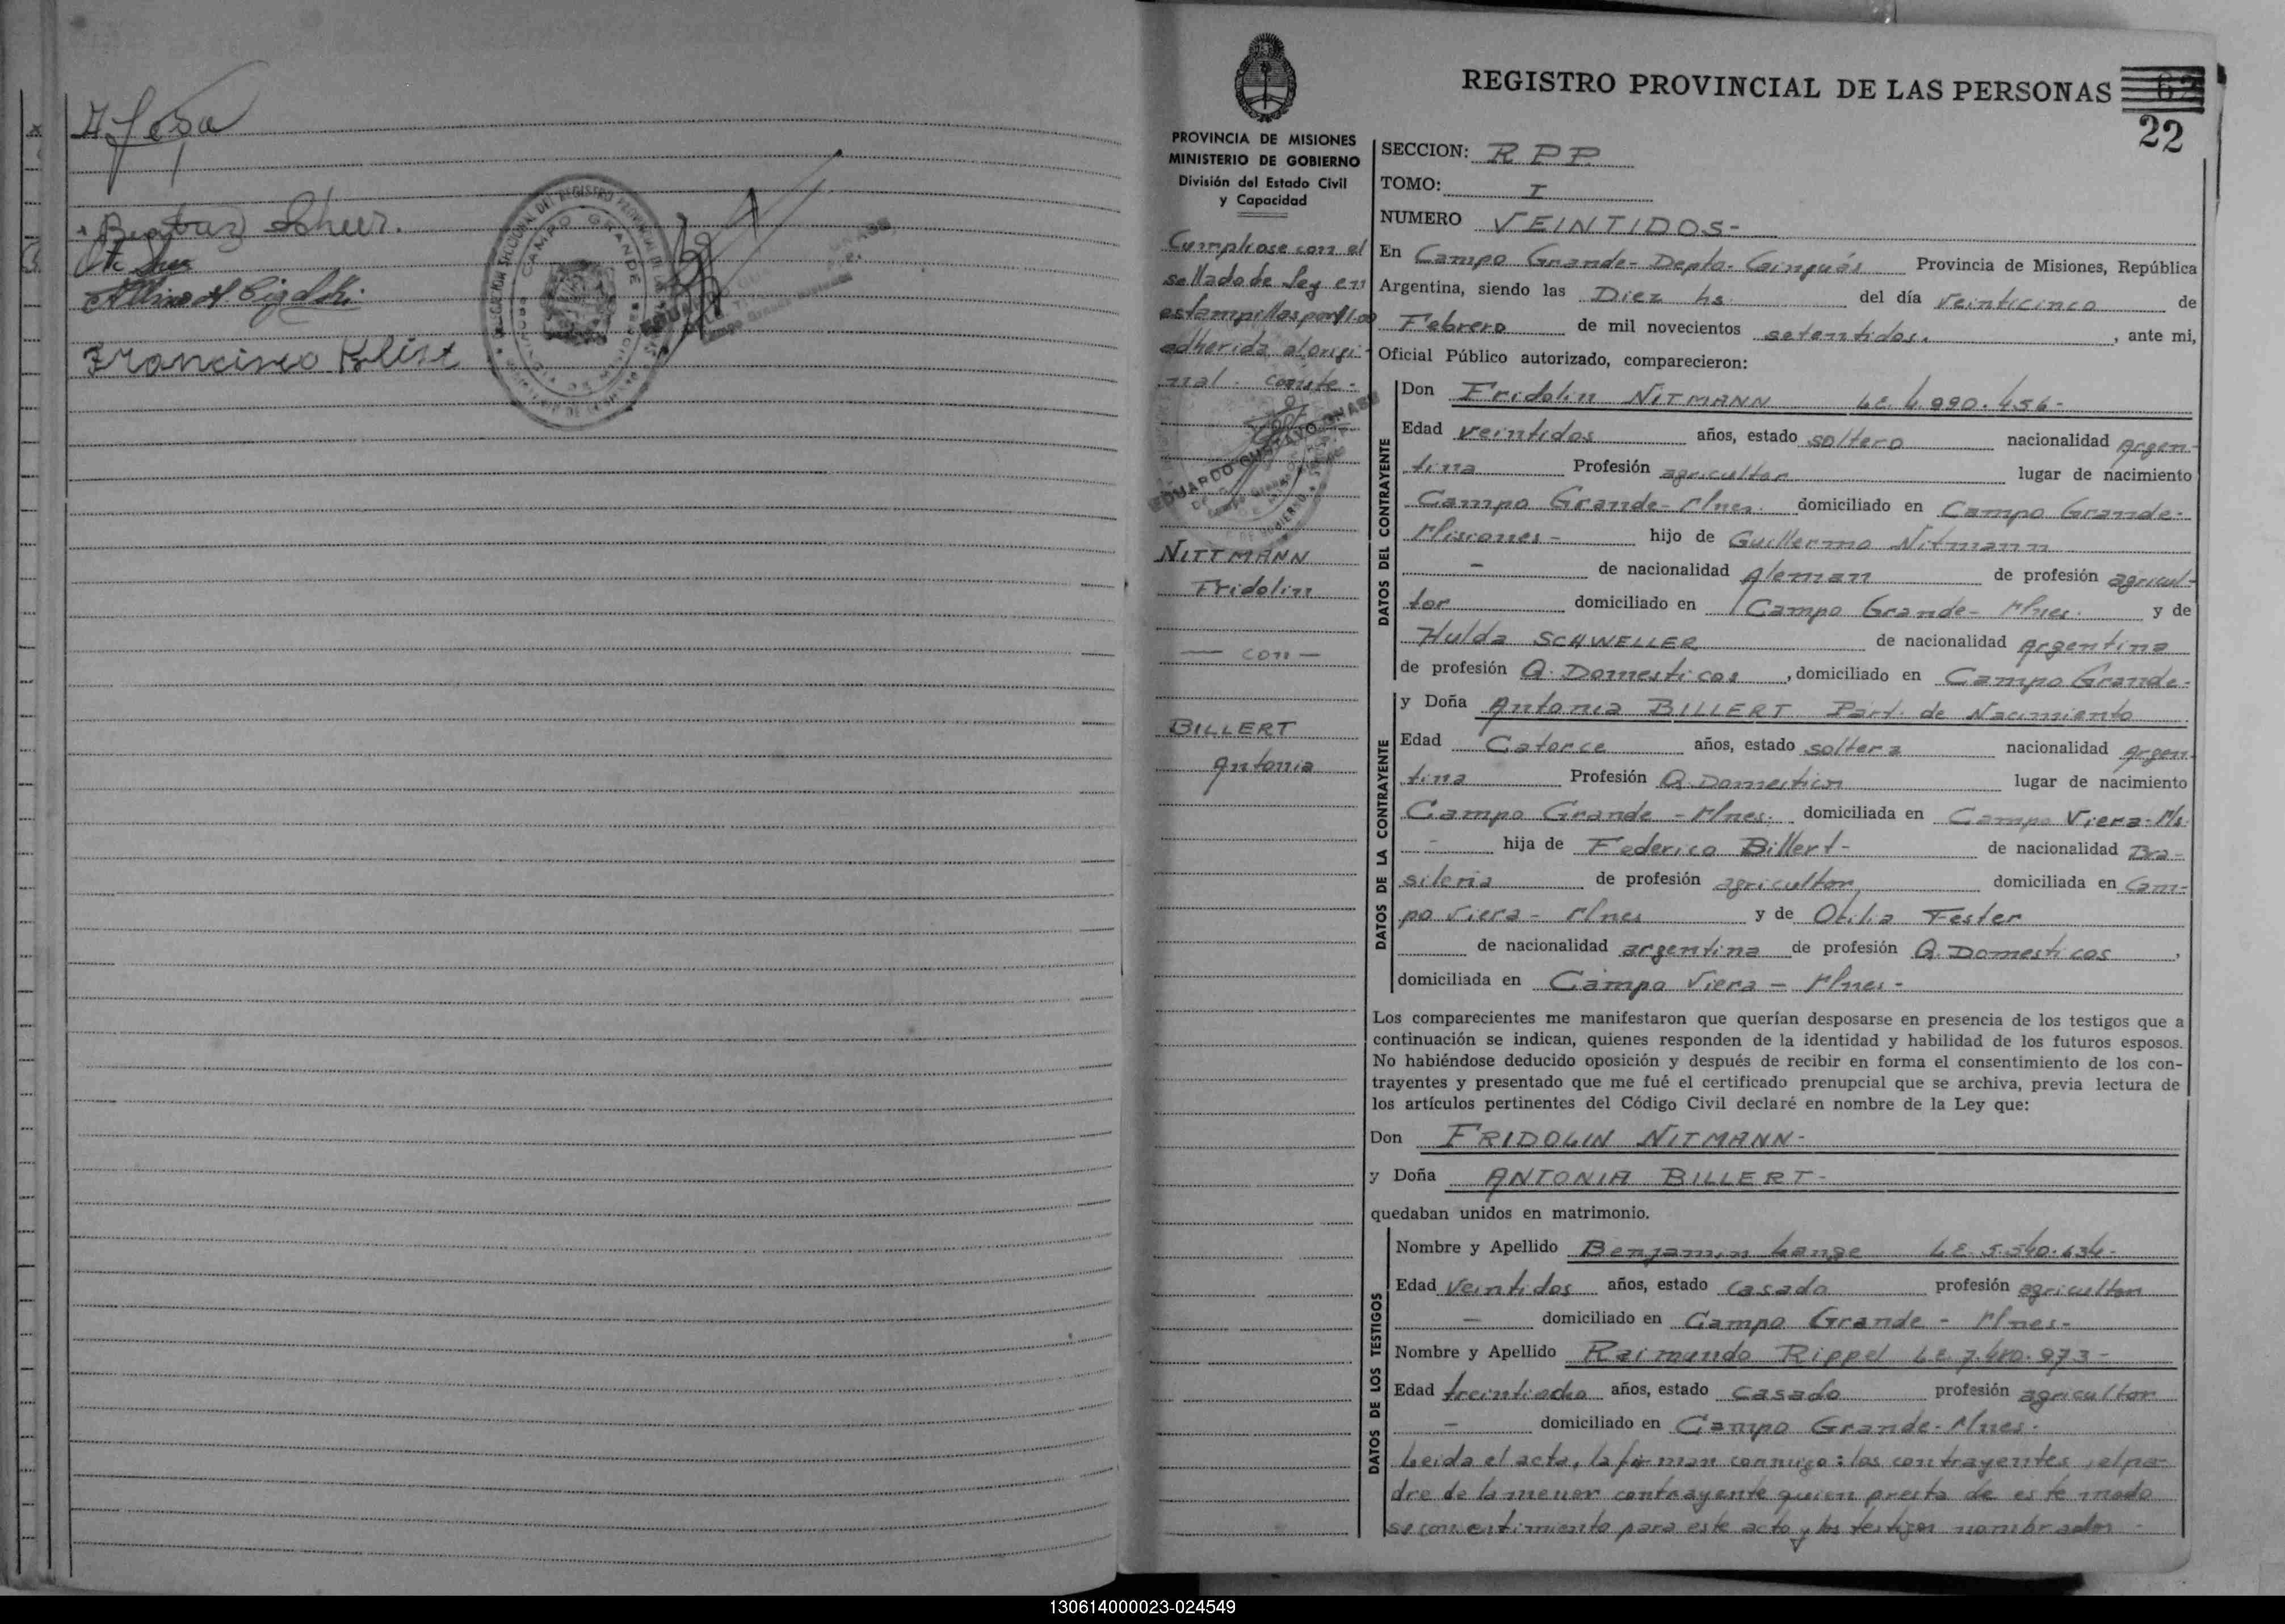 Beatriz Scheer.
Francisco Klist
REGISTRO PROVINCIAL DE LAS PERSONAS
22
PROVINCIA DE MISIONES
MINISTERIO DE GOBIERNO
División del Estado Civil
y Capacidad
Cumplióse con el
sellado de ley en
estampillas por
adherida al origi-
nal. conste-
NITTMANN
Fridolin
— con —
BILLERT
Antonia
SECCION: R P P.
TOMO: I
NUMERO VEINTIDOS-
En Campo Grande- Depto. Cainguás Provincia de Misiones, República
Argentina, siendo las Diez hs. del día veinticinco de
Febrero de mil novecientos setentidos. , ante mi,
Oficial Público autorizado, comparecieron:
DATOS DEL CONTRAYENTE
Don Fridolin NITMANN L.E. 4.990.456-
Edad veintidos años, estado soltero nacionalidad Argen-
tina Profesión agricultor lugar de nacimiento
Campo Grande- Mnes. domiciliado en Campo Grande-
Misiones- hijo de Guillermo Nitmann
- de nacionalidad Aleman de profesión agricul-
tor domiciliado en Campo Grande- Mnes. y de
Hulda SCHWELLER de nacionalidad Argentina
de profesión Q. Domesticos , domiciliado en Campo Grande-
DATOS DE LA CONTRAYENTE
y Doña Antonia BILLERT Part. de Nacimiento
Edad Catorce años, estado soltera nacionalidad Argen-
tina Profesión Q. Domestica lugar de nacimiento
Campo Grande - Mnes. domiciliada en Campo Viera-Ms.
- hija de Federico Billert- de nacionalidad Bra-
sileria de profesión agricultor domiciliada en Cam-
po Viera- Mnes y de Otilia Fester
de nacionalidad argentina de profesión Q. Domesticos ,
domiciliada en Campo Viera - Mnes-
Los comparecientes me manifestaron que querían desposarse en presencia de los testigos que a
continuación se indican, quienes responden de la identidad y habilidad de los futuros esposos.
No habiéndose deducido oposición y después de recibir en forma el consentimiento de los con-
trayentes y presentado que me fué el certificado prenupcial que se archiva, previa lectura de
los artículos pertinentes del Código Civil declaré en nombre de la Ley que:
Don FRIDOLIN NITMANN-
y Doña ANTONIA BILLERT-
quedaban unidos en matrimonio.
DATOS DE LOS TESTIGOS
Nombre y Apellido Benjamin Lange L.E. 5.540.634-
Edad veintidos años, estado casado profesión agricultor
- domiciliado en Campo Grande - Mnes-
Nombre y Apellido Raimundo Rippel L.E. 7.480.973-
Edad treintiocho años, estado casado profesión agricultor
- domiciliado en Campo Grande- Mnes.
Leida el acta, la firman conmigo: los contrayentes, el pa-
dre de la menor contrayente quien presta de este modo
su consentimiento para este acto y los testigos nombrados -
130614000023-024549